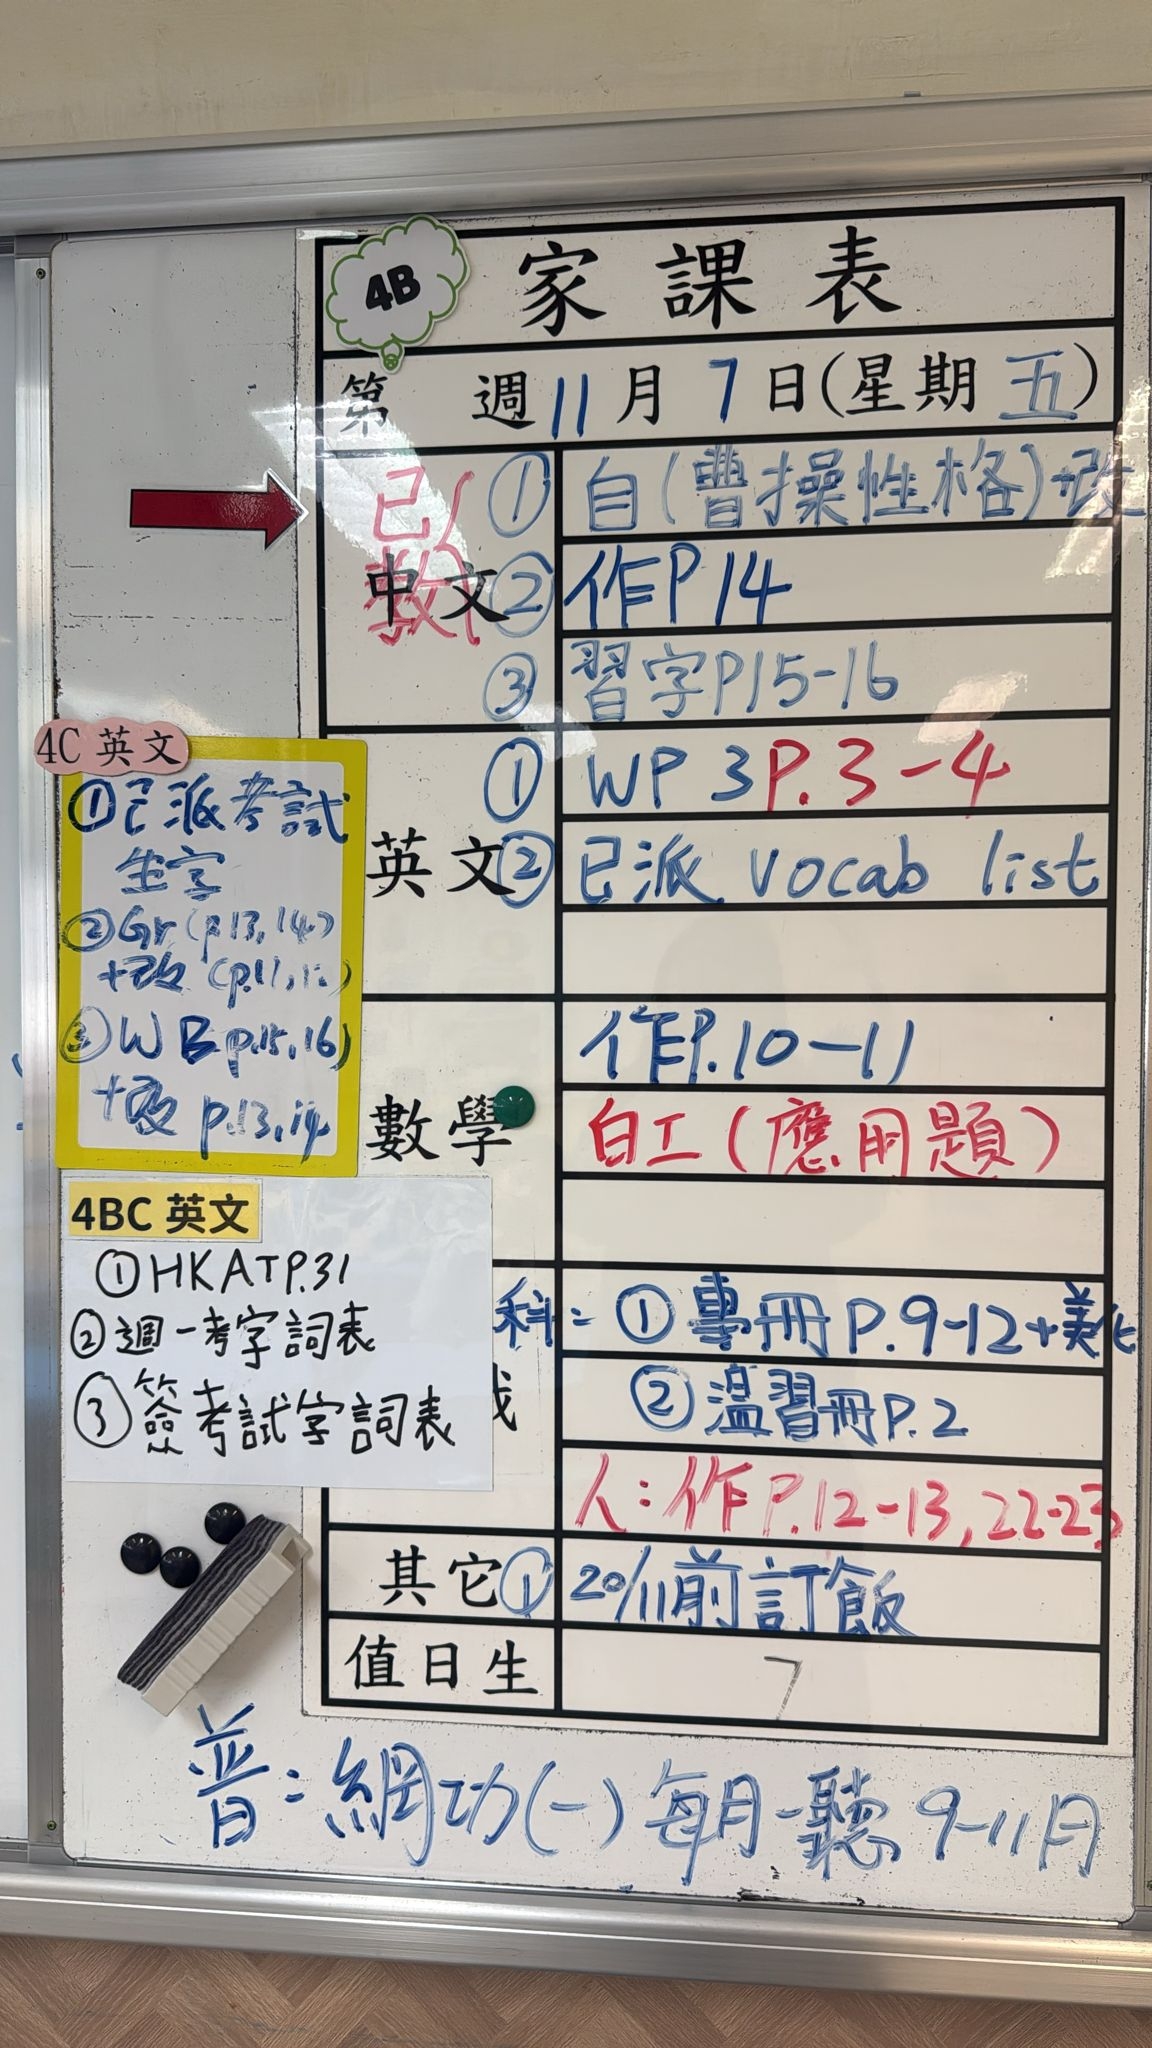 4B
家課表
第 週 11月7日(星期五)
已教
中文
① 自(曹操性格)+改
② 作P14
③ 習字P15-16
英文
① WP 3 P.3-4
② 已派 vocab list
數學
作P.10-11
白工(應用題)
科: ① 專冊P.9-12+美化
② 溫習冊P.2
人: 作P.12-13,22-23
其它
① 20/11前訂飯
值日生
7
普: 網功(一)每月一聽 9-11月
4C 英文
①已派考試
生字
②Gr(p.13,14)
+改(p.11,12)
③WB p.15,16)
+改 p.13,14
4BC 英文
①HKATP.31
②週一考字詞表
③簽考試字詞表